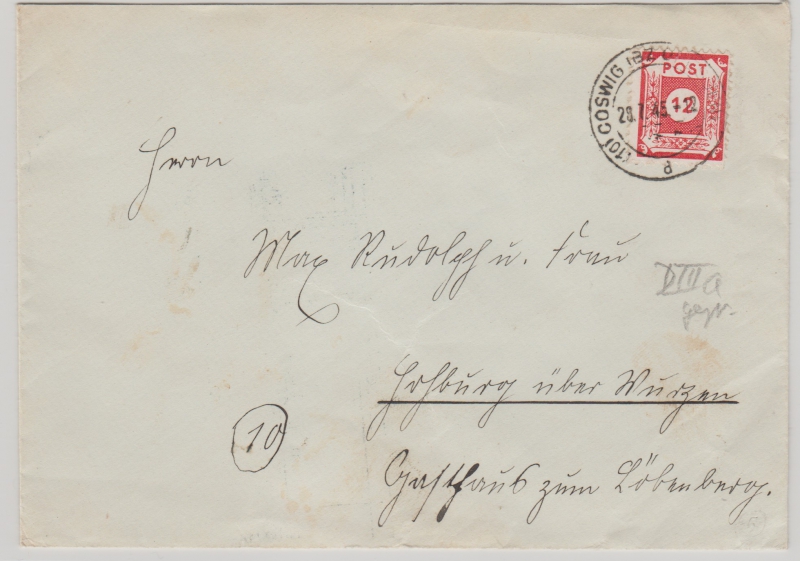 (10) COSWIG (BZ
28.7.45.-12
d
POST
12
Herrn
Max Rudolph u. Frau
DIIIa
gepr.
Hohburg über Wurzen
10
Gasthaus zum Löbenberg.